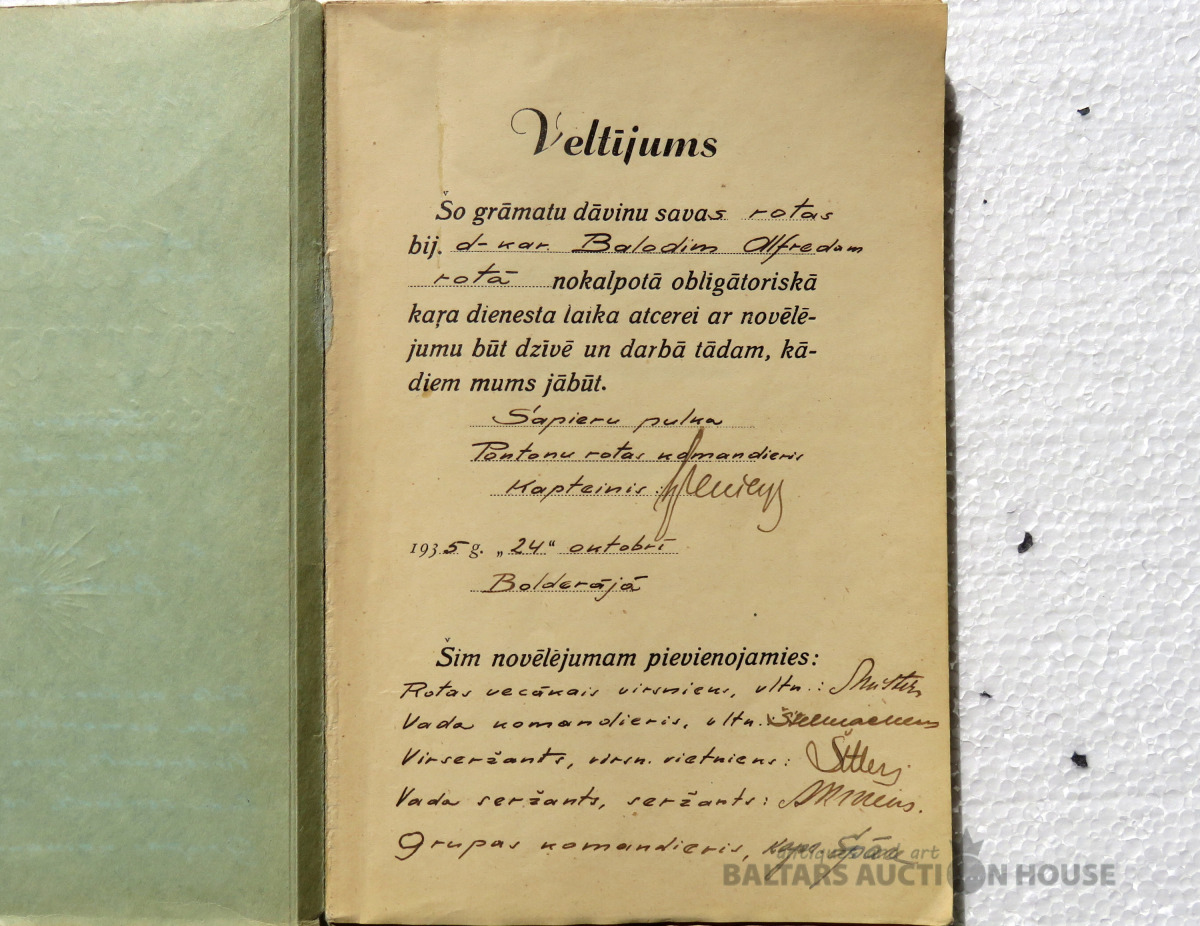 Veltījums
Šo grāmatu dāvinu savas rotas
bij. d-kar. Balodim Alfredam
rotā nokalpotā obligātoriskā
kaŗa dienesta laika atcerei ar novēlē-
jumu būt dzīvē un darbā tādam, kā-
diem mums jābūt.
Sapieru pulka
Pontonu rotas komandieris
Kapteinis:
1935 g. „24“ oktobrī
Bolderājā
Šim novēlējumam pievienojamies:
Rotas vecākais virsnieks, vltn.:
Vada komandieris, vltn.
Virseržants, virsn. vietnieks:
Vada seržants, seržants:
Grupas komandieris,
antiques and art
BALTARS AUCTION HOUSE